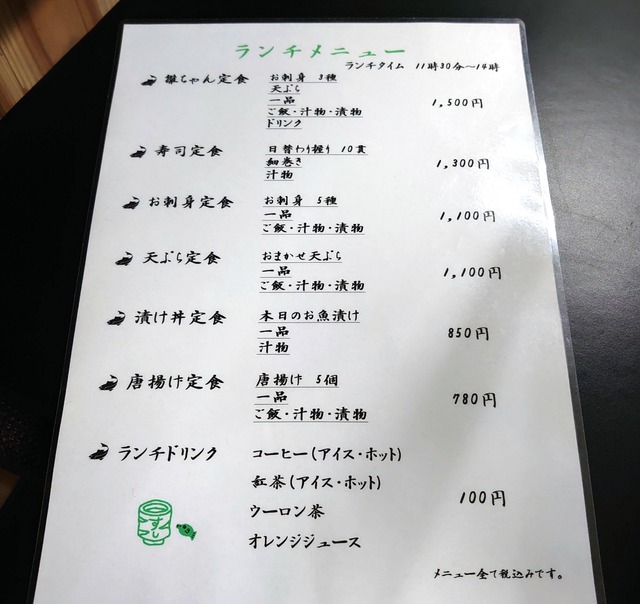 ランチメニュー
ランチタイム 11時30分~14時
雛ちゃん定食 お刺身 3種
天ぷら
一品
ご飯・汁物・漬物
ドリンク
1,500円
寿司定食 日替わり握り 10貫
細巻き
汁物
1,300円
お刺身定食 お刺身 5種
一品
ご飯・汁物・漬物
1,100円
天ぷら定食 おまかせ天ぷら
一品
ご飯・汁物・漬物
1,100円
漬け丼定食 本日のお魚漬け
一品
汁物
850円
唐揚げ定食 唐揚げ 5個
一品
ご飯・汁物・漬物
780円
ランチドリンク コーヒー(アイス・ホット)
紅茶(アイス・ホット)
ウーロン茶
オレンジジュース
100円
すし
メニュー全て税込みです。